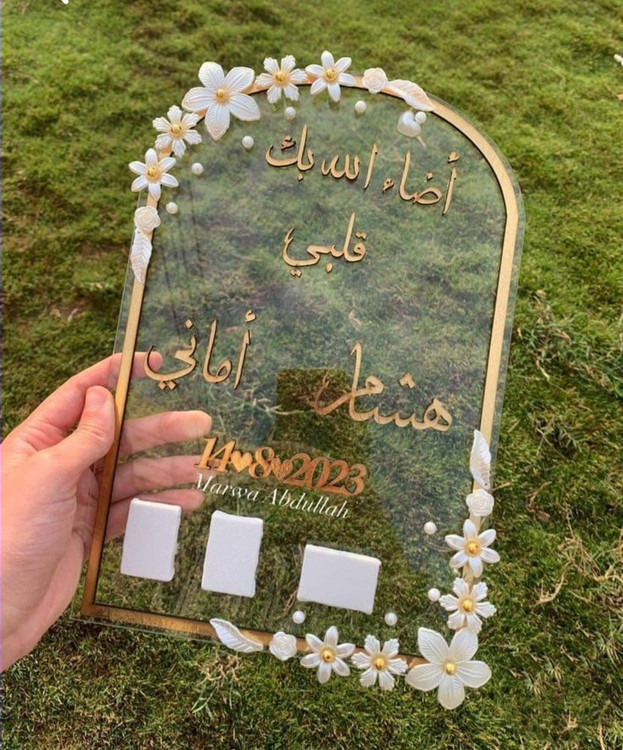 أضاء الله بك
قلبي
هشام أماني
14♥8♥2023
Marwa Abdullah